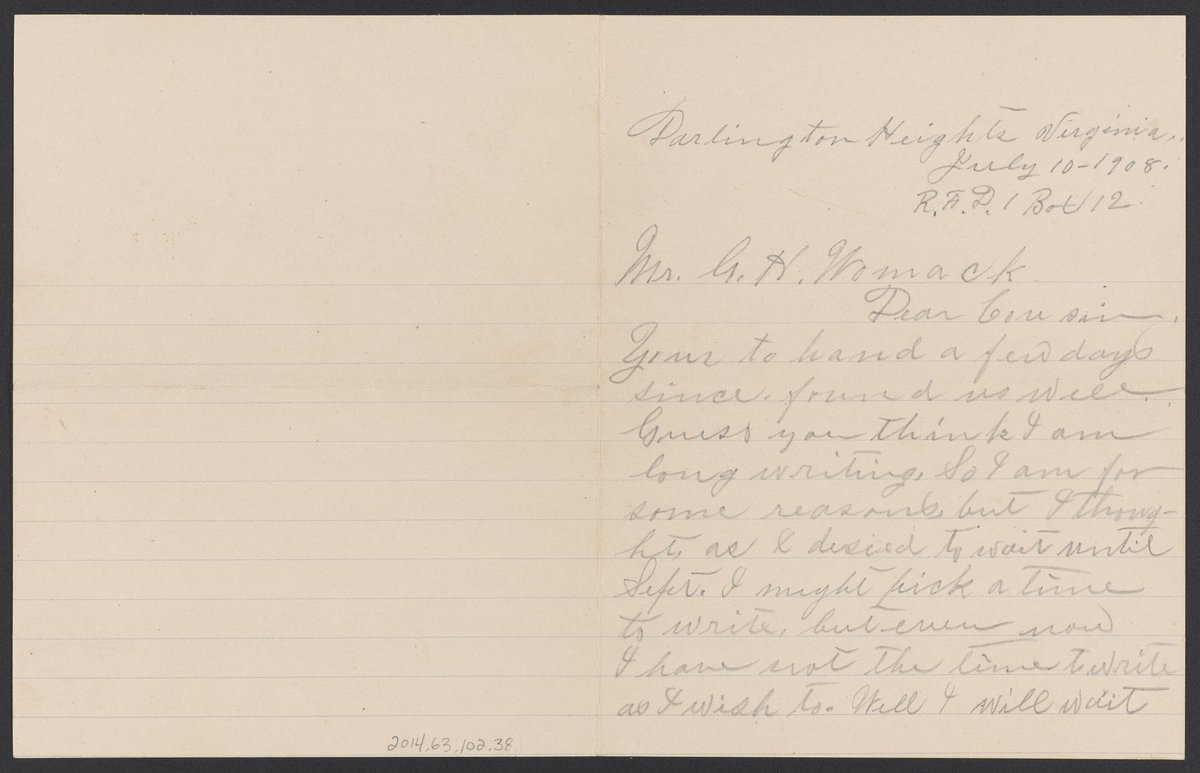 Darlington Heights Virginia.,
July 10-1908.
R.F.D. 1 Box 12.
Mr. G. H. Womack.
Dear Cousin,
Your to hand a few days
since. found us well.
Guess you think I am
long writing, So I am for
some reasons, but I thoug-
ht, as I desied to wait until
Sept. I might pick a time
to write, but even now
I have not the time to write
as I wish to. Well I will wait
2014.63.102.38